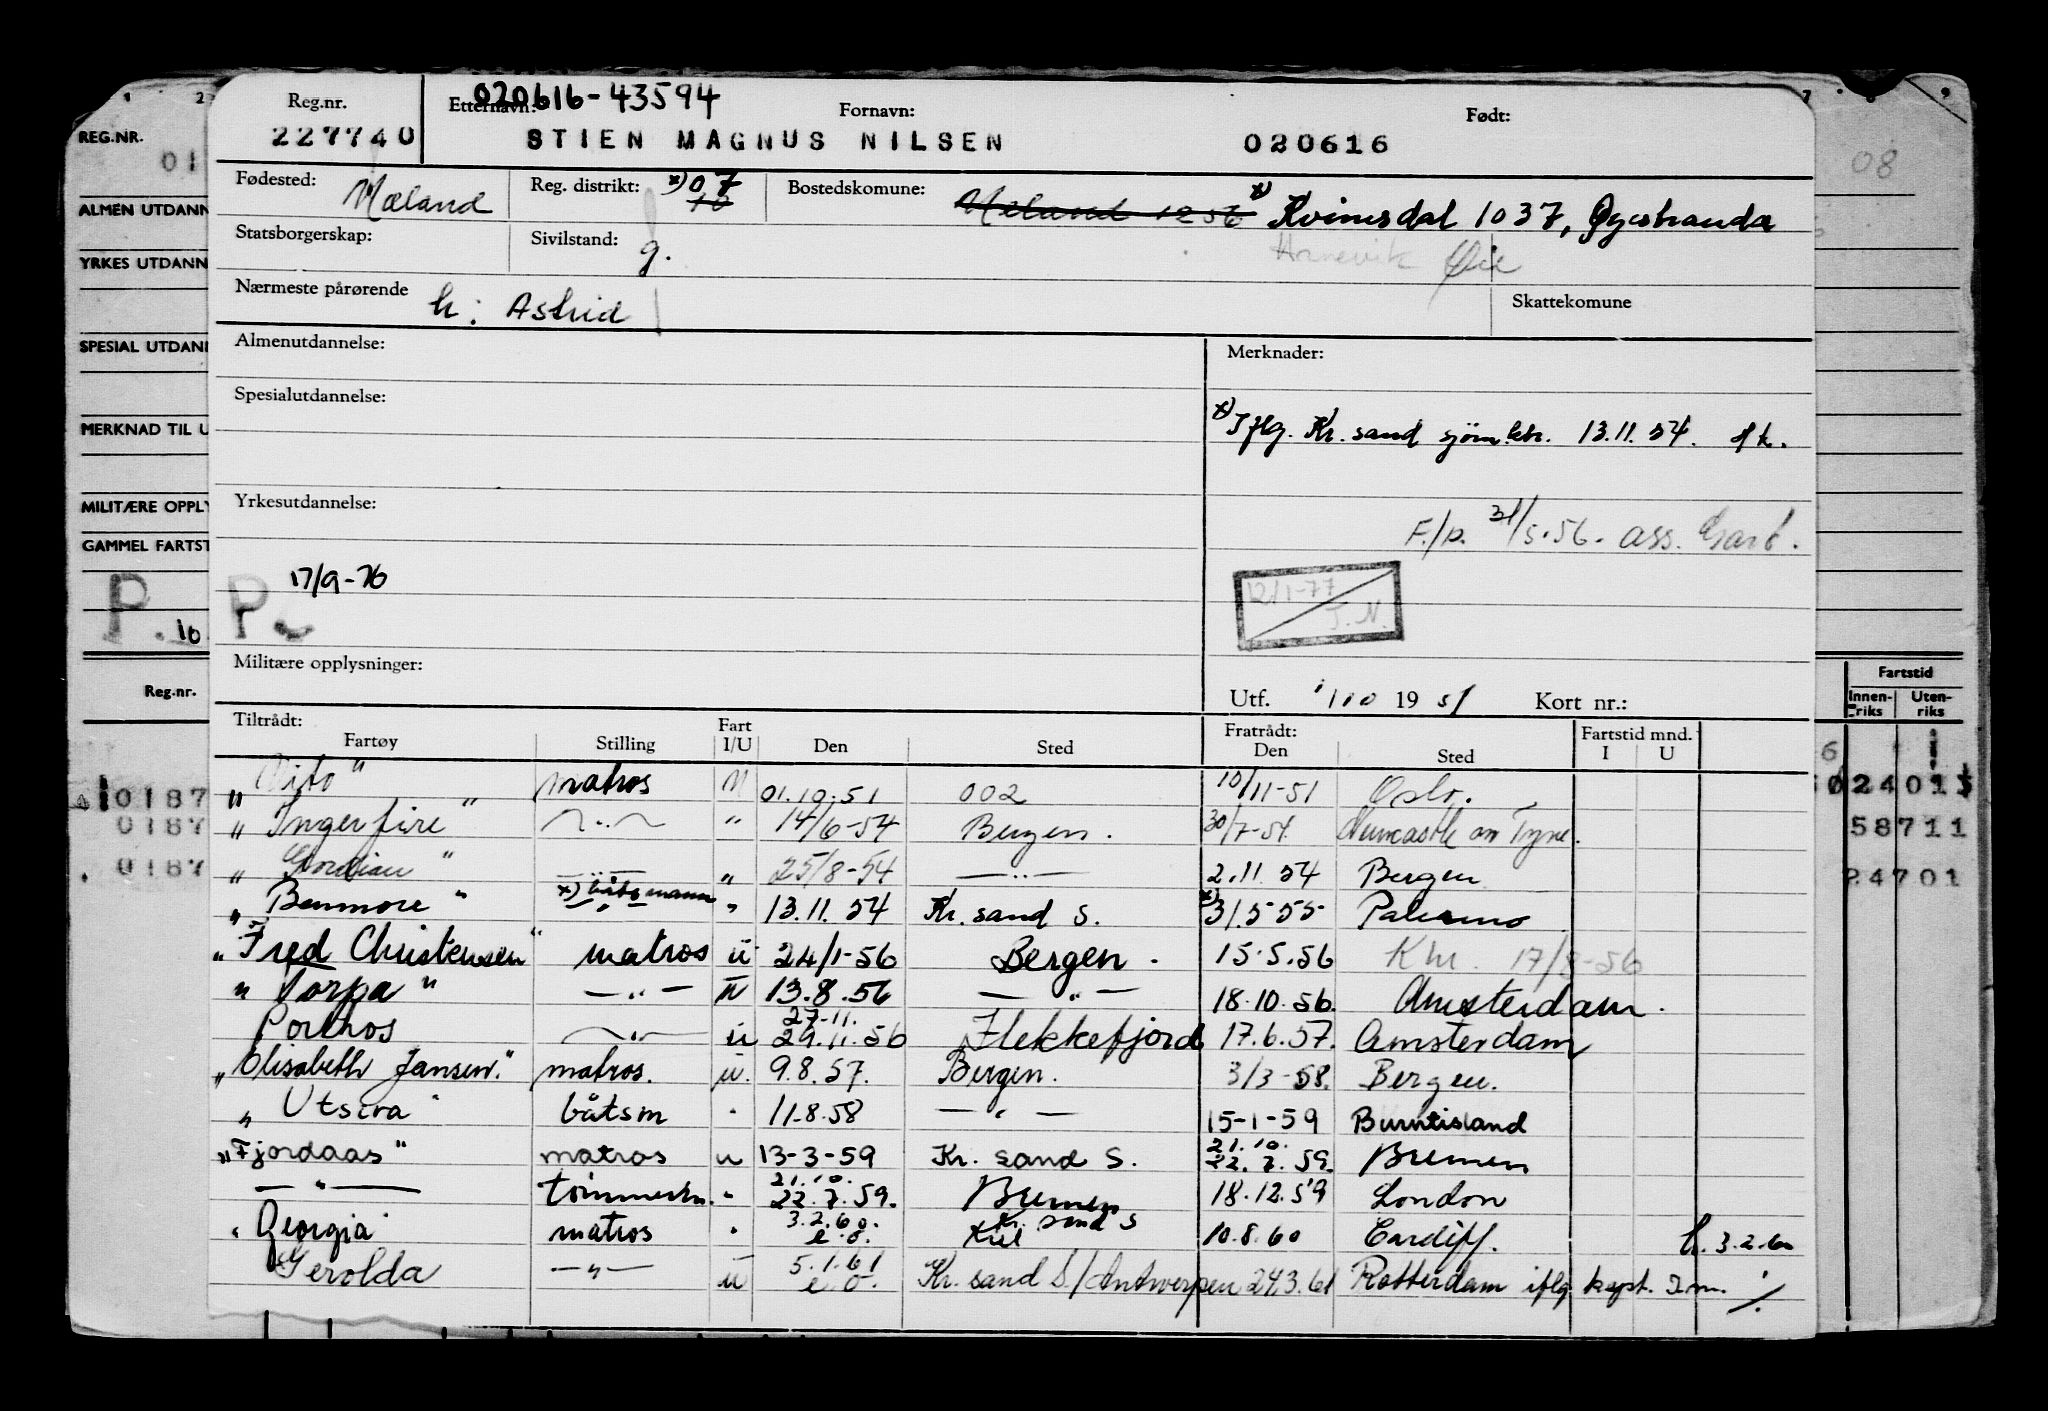 020616-43594
Reg.nr. Etternavn: Fornavn: Født:
227740 STIEN MAGNUS NILSEN 020616
Fødested: Mæland Reg. distrikt: x) 07 10 Bostedskomune: Meland 1256 x) Kvinesdal 1037, Øyestranda
Statsborgerskap: Sivilstand: g. Hanevik Øie
Nærmeste pårørende h: Astrid Skattekomune
Almenutdannelse: Merknader:
Spesialutdannelse:
x) Iflg. Kr. sand sjøm.ktr. 13.11.54.
Yrkesutdannelse:
F./p. 31/5.56. ass.
17/9-76
12/1-77
P.
Militære opplysninger:
Utf. 1951 Kort nr.:
Tiltrådt: Fartøy Stilling Fart I/U Den Sted Fratrådt: Den Sted Fartstid mnd. I U
matros 01.10.51 002 10/11-51 Oslo.
" Ingerfire " —"— " 14/6-54 Bergen. 30/7-54 Newcastle on Tyne.
" Gordian " —"— " 25/8-54 —"— 2.11.54 Bergen
" Benmore " x) båtsmann " 13.11.54 Kr. sand S. x) 31.5.55 Palermo
" Fred Christensen " matros u 24/1-56 Bergen. 15.5.56 17/8-56
" Torpa " —"— u 13.8.56 —"— 18.10.56. Amsterdam.
Porthos —"— u 27-11. 29.11.56 Flekkefjord 17.6.57. Amsterdam
" Elisabeth Jansen." matros. u. 9.8.57. Bergen. 3/3-58. Bergen.
" Utsira " båtsm " 11.8.58 —"— 15-1-59 Burntisland
" Fjordaas " matros u 13-3-59 Kr. sand S. 21.10. 22.7.59. Bremen
—"— tømmerm. " 21.10. 22.7.59. Bremen 18.12.59 London
" Georgia " matros " 3.2.60. e.o. Kr. sand S Kiel 10.8.60 Cardiff. 3.2.60
Gerolda —"— u 5.1.61 e.o. Kr. sand S/Antwerpen 24.3.61 Rotterdam iflg kapt. I.m. ./.
REG.NR.
01
ALMEN UTDANN
YRKES UTDANN
SPESIAL UTDAN
MERKNAD TIL U
MILITÆRE OPPLY
GAMMEL FARTST
P. 10
Reg.nr.
0187
0187
0187
08
Fartstid
Innen-riks Uten-riks
58711
24701